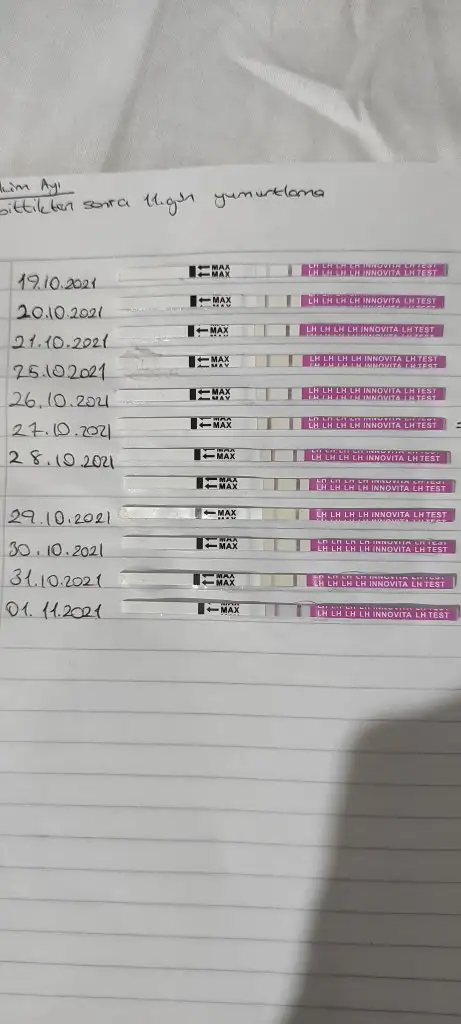 kim Ayı
bittikten sonra 11.gün yumurtlama
19.10.2021 MAX MAX LH LH LH LH INNOVITA LH TEST LH LH LH LH INNOVITA LH TEST
20.10.2021 MAX MAX LH LH LH LH INNOVITA LH TEST
21.10.2021 MAX MAX LH LH LH LH INNOVITA LH TEST
25.10.2021 MAX MAX LH LH LH LH INNOVITA LH TEST LH LH LH LH INNOVITA LH TEST
26.10.2021 MAX MAX LH LH LH LH INNOVITA LH TEST
27.10.2021 MAX MAX LH LH LH LH INNOVITA LH TEST
28.10.2021 MAX MAX LH LH LH LH INNOVITA LH TEST
MAX MAX LH LH LH LH INNOVITA LH TEST
29.10.2021 MAX MAX LH LH LH LH INNOVITA LH TEST
30.10.2021 MAX MAX LH LH LH LH INNOVITA LH TEST
31.10.2021 MAX MAX LH LH LH LH INNOVITA LH TEST
01.11.2021 MAX MAX LH LH LH LH INNOVITA LH TEST